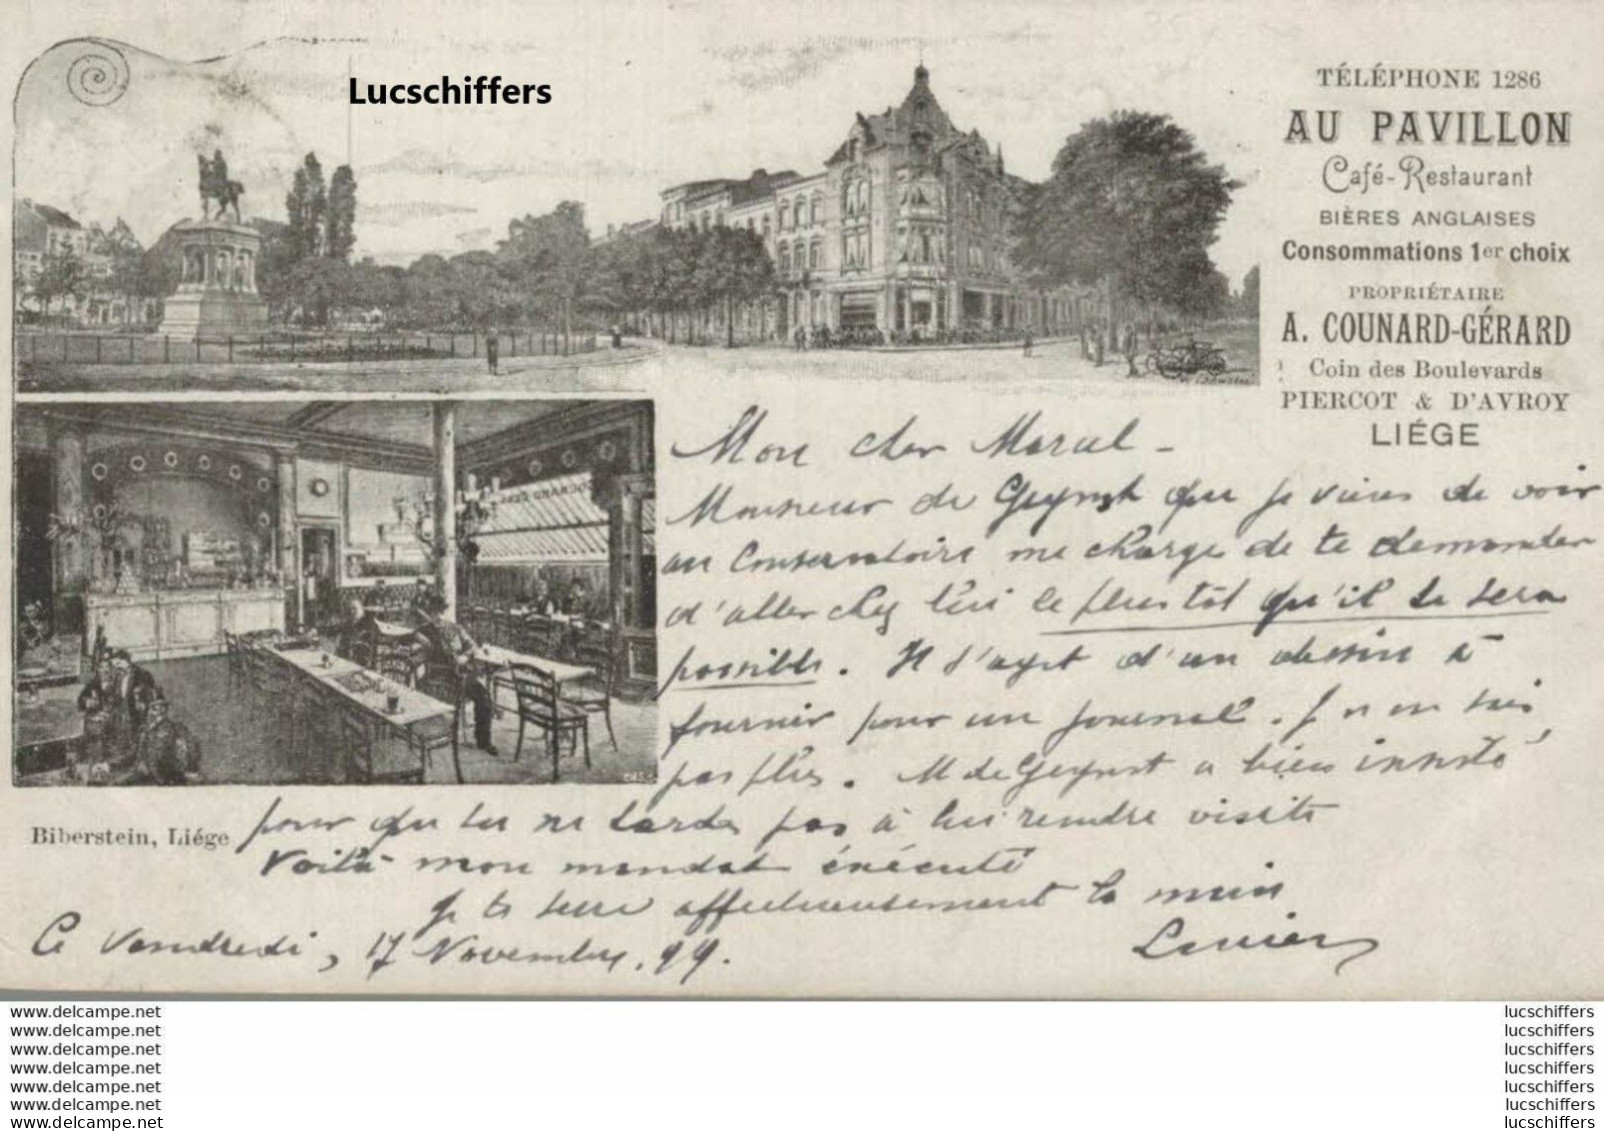 Lucschiffers
TÉLÉPHONE 1286
AU PAVILLON
Café-Restaurant
BIÈRES ANGLAISES
Consommations 1er choix
PROPRIÉTAIRE
A. COUNARD-GÉRARD
Coin des Boulevards
PIERCOT & D'AVROY
LIÉGE
Mon cher Marcel -
Monsieur de que je viens de voir
au Conservatoire me charge de te demander
d'aller chez lui le plus tôt qu'il te sera
possible. Il s'agit d'un dessin à
fournir pour un journal. Je n'en sais
pas plus. M de a bien insisté
Biberstein, Liége
pour que tu ne tardes pas à lui rendre visite
Voilà mon mandat exécuté
Je te serre affectueusement la main
Ce Vendredi, 17 Novembre, 99.
www.delcampe.net
www.delcampe.net
www.delcampe.net
www.delcampe.net
www.delcampe.net
www.delcampe.net
www.delcampe.net
lucschiffers
lucschiffers
lucschiffers
lucschiffers
lucschiffers
lucschiffers
lucschiffers